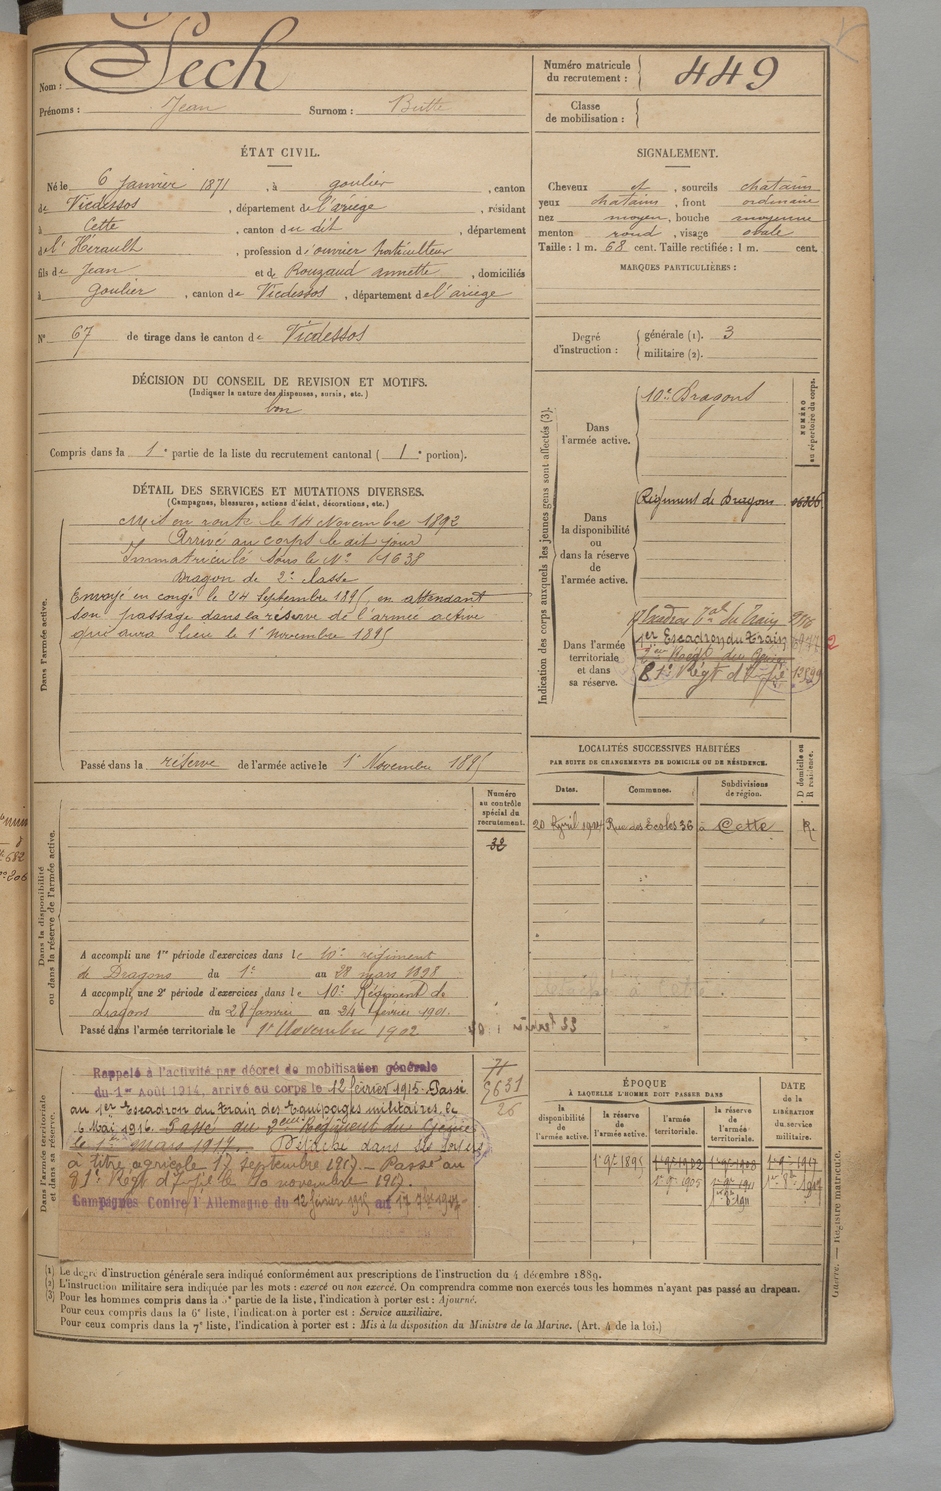 Nom : Pech
Prénoms : Jean Surnom : Butte
Numéro matricule du recrutement : 449
Classe de mobilisation :
ÉTAT CIVIL.
Né le 6 Janvier 1871, à goulier, canton
de Vicdessos, département de l'ariège, résidant
à Cette, canton du dit, département
de l'Hérault, profession d'ouvrier horticulteur
fils de Jean et de Rouzaud annette, domiciliés
à Goulier, canton de Vicdessos, département de l'ariège
N° 67 de tirage dans le canton de Vicdessos
SIGNALEMENT.
Cheveux et, sourcils chatains
yeux chatains, front ordinaire
nez moyen, bouche moyenne
menton rond, visage ovale
Taille : 1 m. 68 cent. Taille rectifiée : 1 m. cent.
MARQUES PARTICULIÈRES :
Degré d'instruction : générale (1). 3
militaire (2).
DÉCISION DU CONSEIL DE REVISION ET MOTIFS.
(Indiquer la nature des dispenses, sursis, etc.)
bon
Compris dans la 1e partie de la liste du recrutement cantonal ( 1e portion).
DÉTAIL DES SERVICES ET MUTATIONS DIVERSES.
(Campagnes, blessures, actions d'éclat, décorations, etc.)
Dans l'armée active.
Mis en route le 14 Novembre 1892
Arrivé au corps le dit jour
Immatriculé sous le N° 1638
Dragon de 2e classe
Envoyé en congé le 24 Septembre 1895, en attendant
son passage dans la réserve de l'armée active
qui aura lieu le 1er Novembre 1895
Passé dans la réserve de l'armée active le 1er Novembre 1895
Indication des corps auxquels les jeunes gens sont affectés (3).
NUMÉRO au répertoire du corps.
Dans l'armée active.
10e Dragons
Dans la disponibilité ou dans la réserve de l'armée active.
Régiment de Dragons
Dans l'armée territoriale et dans sa réserve.
du Train
1er Escadron du Train
2eme Regt du Génie
81e Régt d'Inf.ie
LOCALITÉS SUCCESSIVES HABITÉES
PAR SUITE DE CHANGEMENTS DE DOMICILE OU DE RÉSIDENCE.
Dates. Communes. Subdivisions de région. D domicile ou R résidence.
20 Avril 1904 Rue des Ecoles 36 à Cette R.
Numéro au contrôle spécial du recrutement.
32
Dans la disponibilité ou dans la réserve de l'armée active.
A accompli une 1re période d'exercices dans le 10e régiment
de Dragons du 1er au 28 mars 1898
A accompli une 2e période d'exercices dans le 10e Régiment de
dragons du 28 janvier au 24 février 1901.
Passé dans l'armée territoriale le 1er Novembre 1902
Dans l'armée territoriale et dans sa réserve.
Rappelé à l'activité par décret de mobilisation générale
du 1er Août 1914, arrivé au corps le 12 février 1915. Passé
au 1er Escadron du Train des Equipages militaires le
6 Mai 1916. Passé au 2eme Régiment du Génie
le 1er mars 1917. Détaché dans ses foyers
à titre agricole 17 septembre 1917. — Passé au
81e Régt d'If.ie le 10 novembre 1917.
Campagnes Contre l'Allemagne du 12 février 1915 au 17 7bre 1917
ÉPOQUE
À LAQUELLE L'HOMME DOIT PASSER DANS
la disponibilité de l'armée active. la réserve de l'armée active. l'armée territoriale. la réserve de l'armée territoriale.
DATE DE LA LIBÉRATION du service militaire.
1er 9bre 1895 1er 9bre 1902 1er 9bre 1908 1er 9bre 1917
1er 9bre 1905 1er 9bre 1911
(1) Le degré d'instruction générale sera indiqué conformément aux prescriptions de l'instruction du 4 décembre 1889.
(2) L'instruction militaire sera indiquée par les mots : exercé ou non exercé. On comprendra comme non exercés tous les hommes n'ayant pas passé au drapeau.
(3) Pour les hommes compris dans la 5e partie de la liste, l'indication à porter est : Ajourné.
Pour ceux compris dans la 6e liste, l'indication à porter est : Service auxiliaire.
Pour ceux compris dans la 7e liste, l'indication à porter est : Mis à la disposition du Ministre de la Marine. (Art. 4 de la loi.)
Guerre. — Registre matricule.